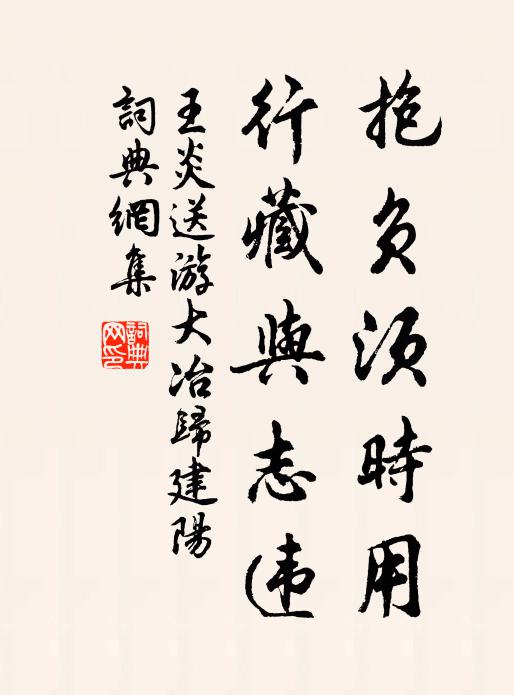 抱負須時用
行藏與志違
王炎送游大冶歸建陽
詞典網集
詞典网印